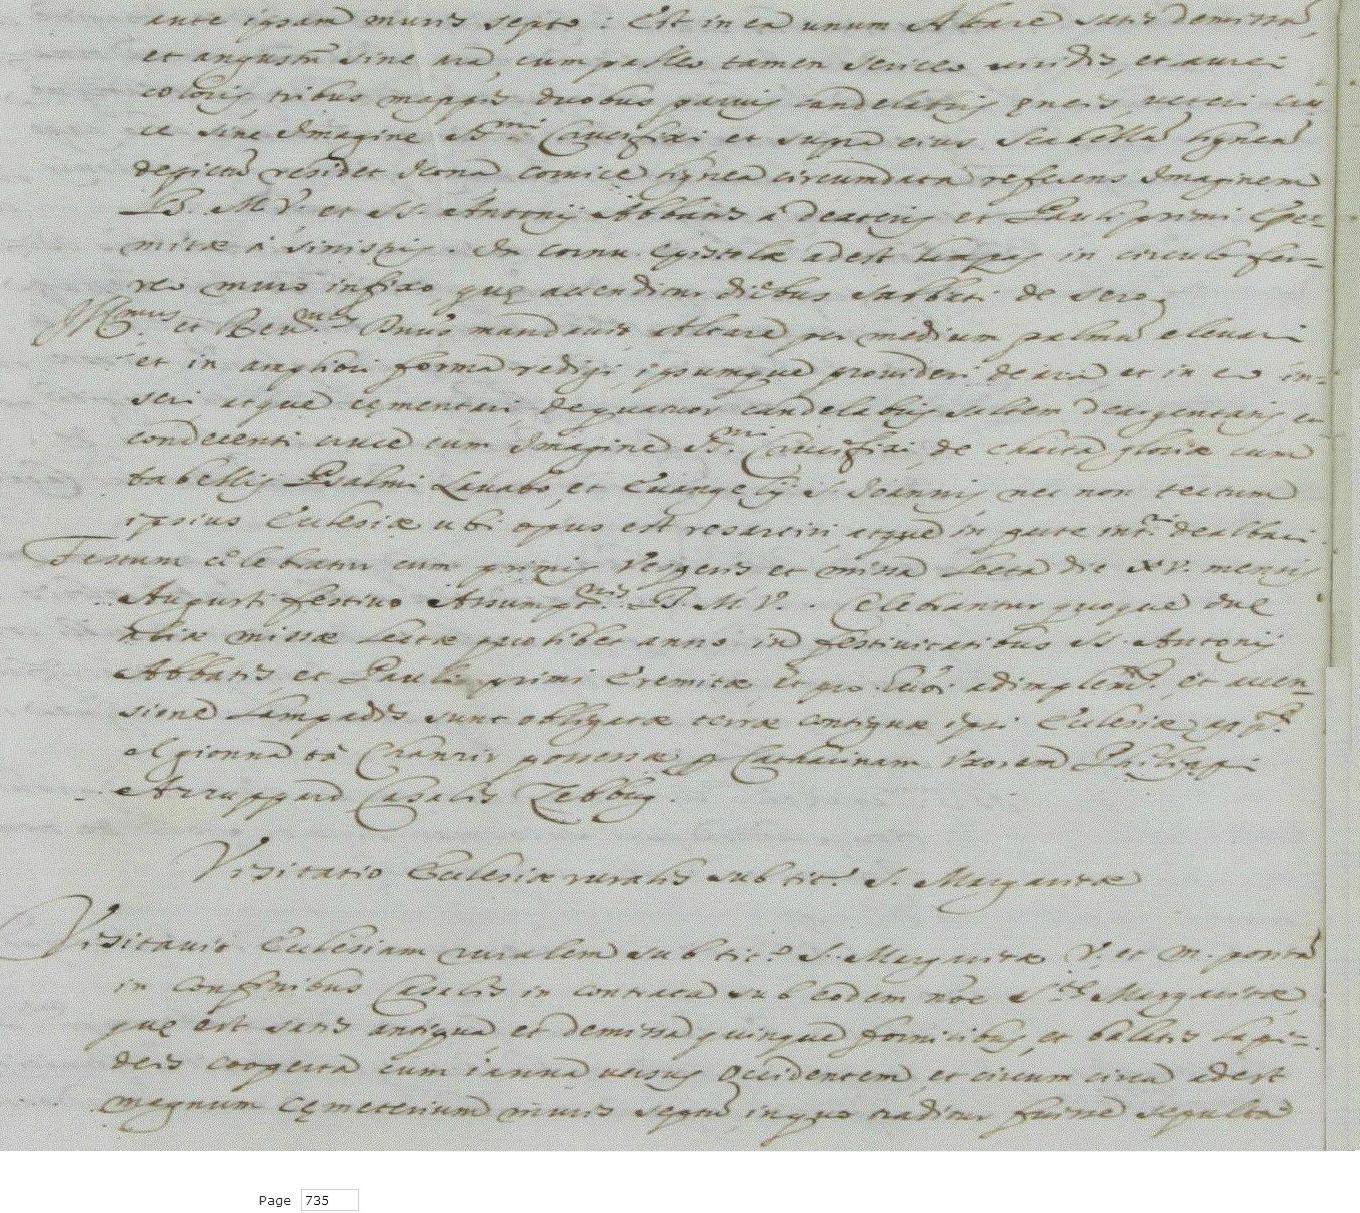 ante ipsam muris septo : Est in ea unum Altare satis demissū,
et angustū sine arā, cum palleo tamen sericeo viridis, et aurei
coloris, tribus mappis duobus parvis candelabris ęneis, veteri cru
ce sine Imagine SS.mi Crucifixi et supra eius Scabellū ligneū
depictū residet Icona cornice lignea circumdata referens Imaginem
B. M. V. et SS. Antonij Abbatis à dexteris et Pauli primi Ere=
mitæ à sinistris. In cornu Epistolæ adest lampas in circulo fer=
reo muro infixo, quę accenditur diebus Sabbati de sero.
Ill.mus et Rev.mus Dnūs mandavit Altare per medium palmū elevari
et in ampliori forma redigi, ipsumque provideri de arā, et in eo in=
seri atque cęmentari, de quatuor candelabris saltem deargentatis cu
condecenti cruce cum Imagine SS.mi Crucifixi, de charta gloriæ cum
tabellis Psalmi Lavabo, et Evangelij S. Joannis nec non tectum
ipsius Ecclesiæ ubi opus est resarciri, atque in parte int.a dealbari.
Festum celebratur cum primis Vesperis et missa lecta die XV. mensis
Augusti festivo Assumpt.nis B. M. V. . Celebrantur quoque duę
aliæ missæ lectæ quolibet anno in festivitatibus SS. Antonij
Abbatis et Pauli primi Eremitæ et pro huōi adimplem.to, et accen=
sione Lampadis sunt obligatæ terræ contiguæ ipsi Ecclesiæ app.tæ
Il gionna ta Chanzir possessæ p Catharinam Uxorem Philippi
Azzuppard Casalis Zebbug.
Visitatio Ecclesiæ ruralis sub tit.o S. Margaritæ
Visitavit Ecclesiam ruralem sub tit.o S. Margaritæ V. et M. positā
in confinibus Casalis in contrata sub eodem nōe S.tæ Margaritæ
quę est satis antiqua, et demissa quinque fornicibus, et balatis lapi=
deis cooperta cum ianua versus Occidentem, et circum circa adest
magnum cęmeterium muris septū in quo traditur fuisse sepulta
Page 735